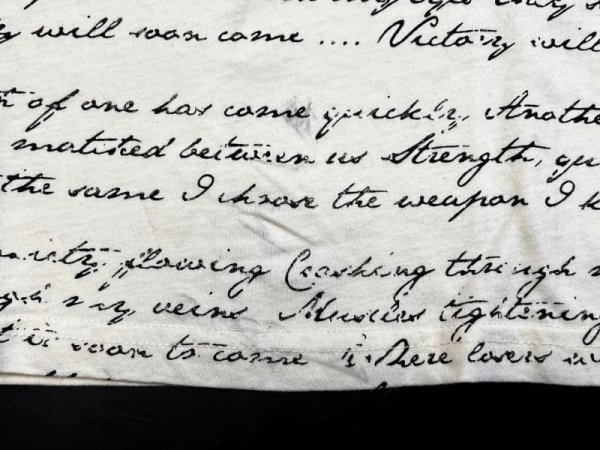 my eyes they s
y will soon come .... Victory will
of one has come quickly, Anothe
matched between us Strength, qu
the same I choose the weapon I k
xiety flowing Crashing through m
gh my veins Muscles tightening
t is soon to come Where losers a